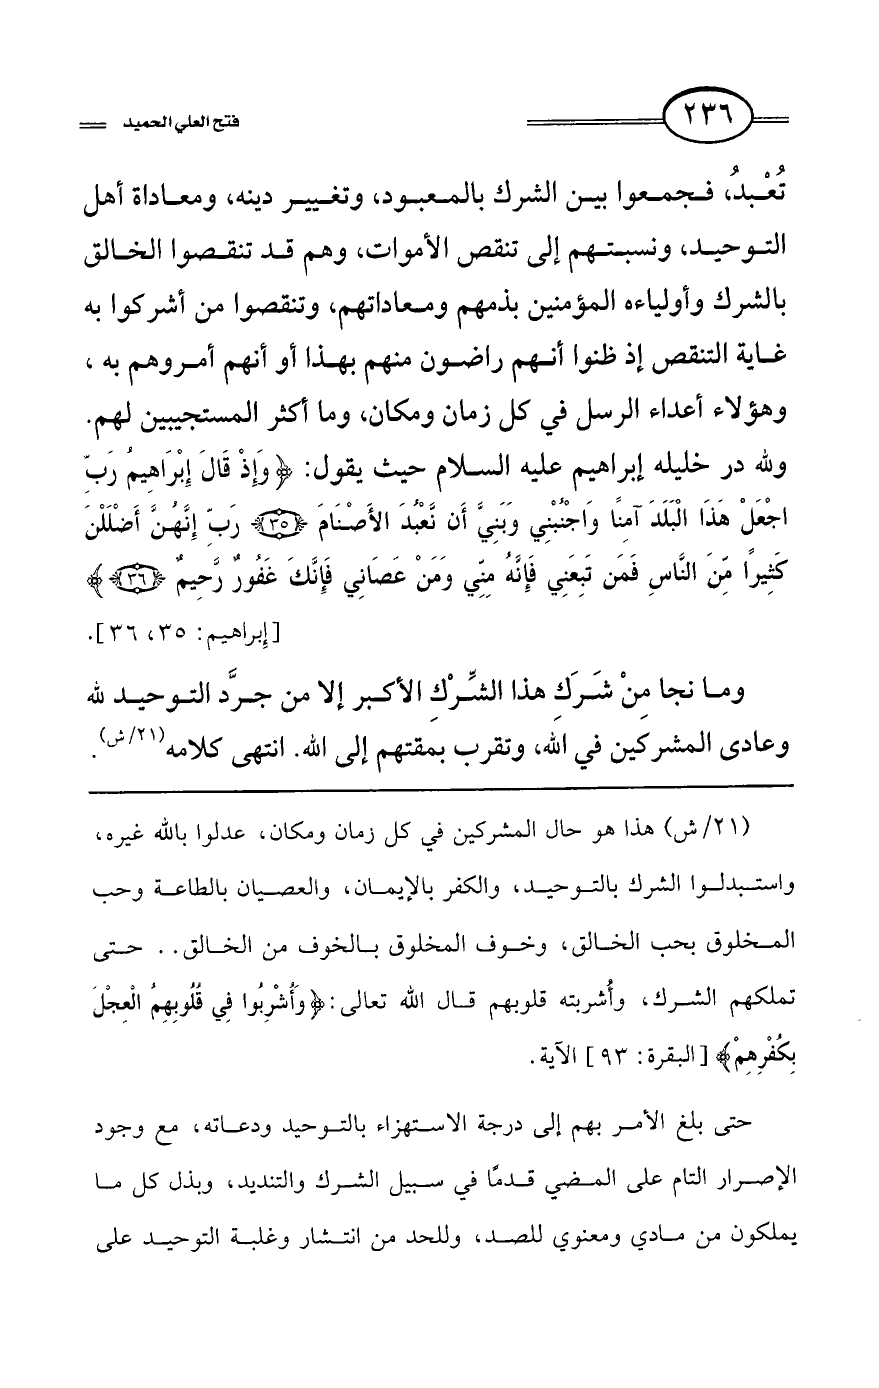 ٢٣٦
فتح العلي الحميد
تُعْبدُ، فجمعوا بين الشرك بالمعبود، وتغيير دينه، ومعاداة أهل
التوحيد، ونسبتهم إلى تنقص الأموات، وهم قد تنقصوا الخالق
بالشرك وأولياءه المؤمنين بذمهم ومعاداتهم، وتنقصوا من أشركوا به
غاية التنقص إذ ظنوا أنهم راضون منهم بهذا أو أنهم أمروهم به ،
وهؤلاء أعداء الرسل في كل زمان ومكان، وما أكثر المستجيبين لهم.
ولله در خليله إبراهيم عليه السلام حيث يقول: ﴿وَإِذْ قَالَ إِبْرَاهِيمُ رَبِّ
اجْعَلْ هَذَا الْبَلَدَ آمِنًا وَاجْنُبْنِي وَبَنِيَّ أَن نَّعْبُدَ الأَصْنَامَ ﴿٣٥﴾ رَبِّ إِنَّهُنَّ أَضْلَلْنَ
كَثِيرًا مِّنَ النَّاسِ فَمَن تَبِعَنِي فَإِنَّهُ مِنِّي وَمَنْ عَصَانِي فَإِنَّكَ غَفُورٌ رَّحِيمٌ ﴿٣٦﴾﴾
[إبراهيم: ٣٥، ٣٦].
وما نجا مِنْ شَرَكِ هذا الشِّرْكِ الأكبر إلا من جرَّد التوحيد لله
وعادى المشركين في الله، وتقرب بمقتهم إلى الله. انتهى كلامه(٢١/ش).
(٢١/ش) هذا هو حال المشركين في كل زمان ومكان، عدلوا بالله غيره،
واستبدلوا الشرك بالتوحيد، والكفر بالإيمان، والعصيان بالطاعة وحب
المخلوق بحب الخالق، وخوف المخلوق بالخوف من الخالق.. حتى
تملكهم الشرك، وأُشربته قلوبهم قال الله تعالى: ﴿وَأُشْرِبُوا فِي قُلُوبِهِمُ الْعِجْلَ
بِكُفْرِهِمْ﴾ [البقرة: ٩٣] الآية.
حتى بلغ الأمر بهم إلى درجة الاستهزاء بالتوحيد ودعاته، مع وجود
الإصرار التام على المضي قدمًا في سبيل الشرك والتنديد، وبذل كل ما
يملكون من مادي ومعنوي للصد، وللحد من انتشار وغلبة التوحيد على